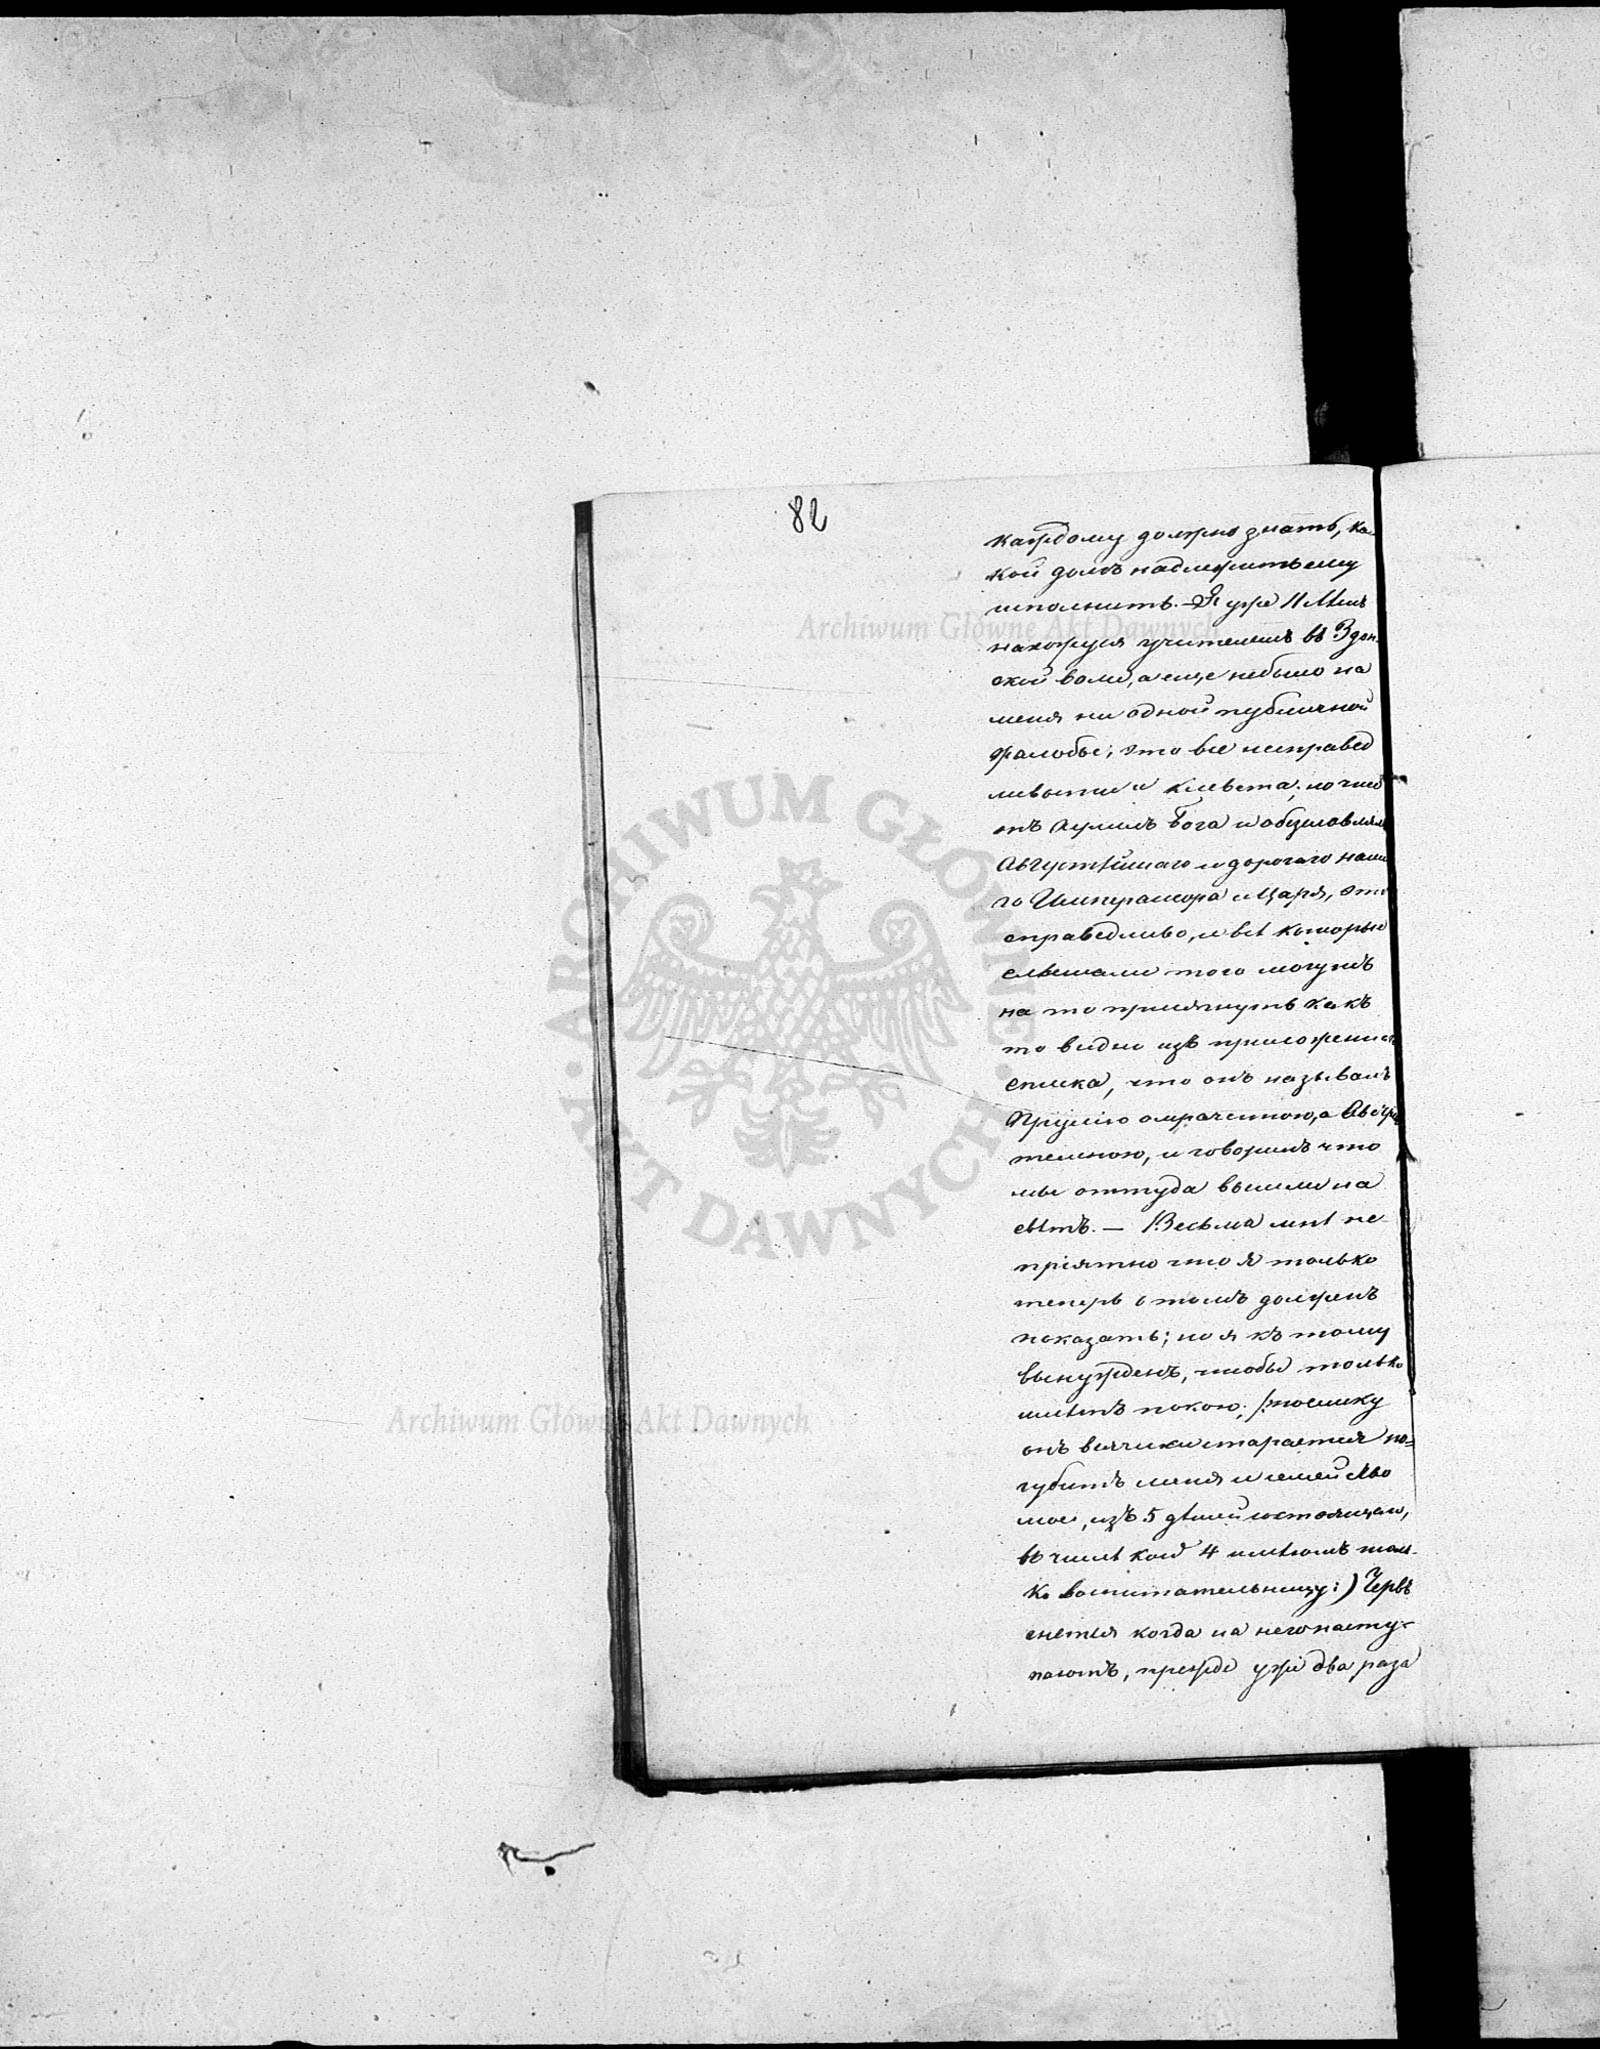 82
каждому должно знать, ка-
кой долгъ надлежитъ ему
исполнить. — Я уже 11 лѣтъ
нахожуся учителемъ въ Здон-
ской воли, а еще небыло на
меня ни одной публичной
жалобы; это все неправед
ливости и клевета; но что
онъ хулилъ Бога и
Августѣйшаго и дорогаго наше
го Императора и Царя, это
справедливо, и всѣ которые
слышали того могутъ
на то присягнуть какъ
то видно изъ приложеннаго
списка, что онъ называлъ
Пруссію омраченною, а Австрію
темною, и говорилъ что
мы оттуда вышли на
свѣтъ. — Весьма мнѣ не-
пріятно что я только
теперь о томъ долженъ
показать; но я къ тому
вынужденъ, чтобы только
имѣть покою; /: поелику
онъ всячески старается по=
губить меня и семейство
мое, изъ 5 дѣтей состоящаго,
въ числѣ коихъ 4 имѣютъ толь-
ко воспитательницу :) Червь
гнется когда на него насту-
паютъ, прежде уже два раза
Archiwum Główne Akt Dawnych
Archiwum Główne Akt Dawnych
ARCHIWUM GŁÓWNE · AKT DAWNYCH ·